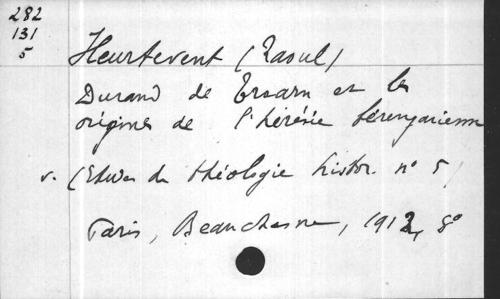 282
131
5
Heurtevent (Raoul)
Durand de Troarn et les
origines de l'hérésie bérengarienne
v. (Etudes de théologie histor. n° 5)
Paris, Beauchesne, 1912, 8°